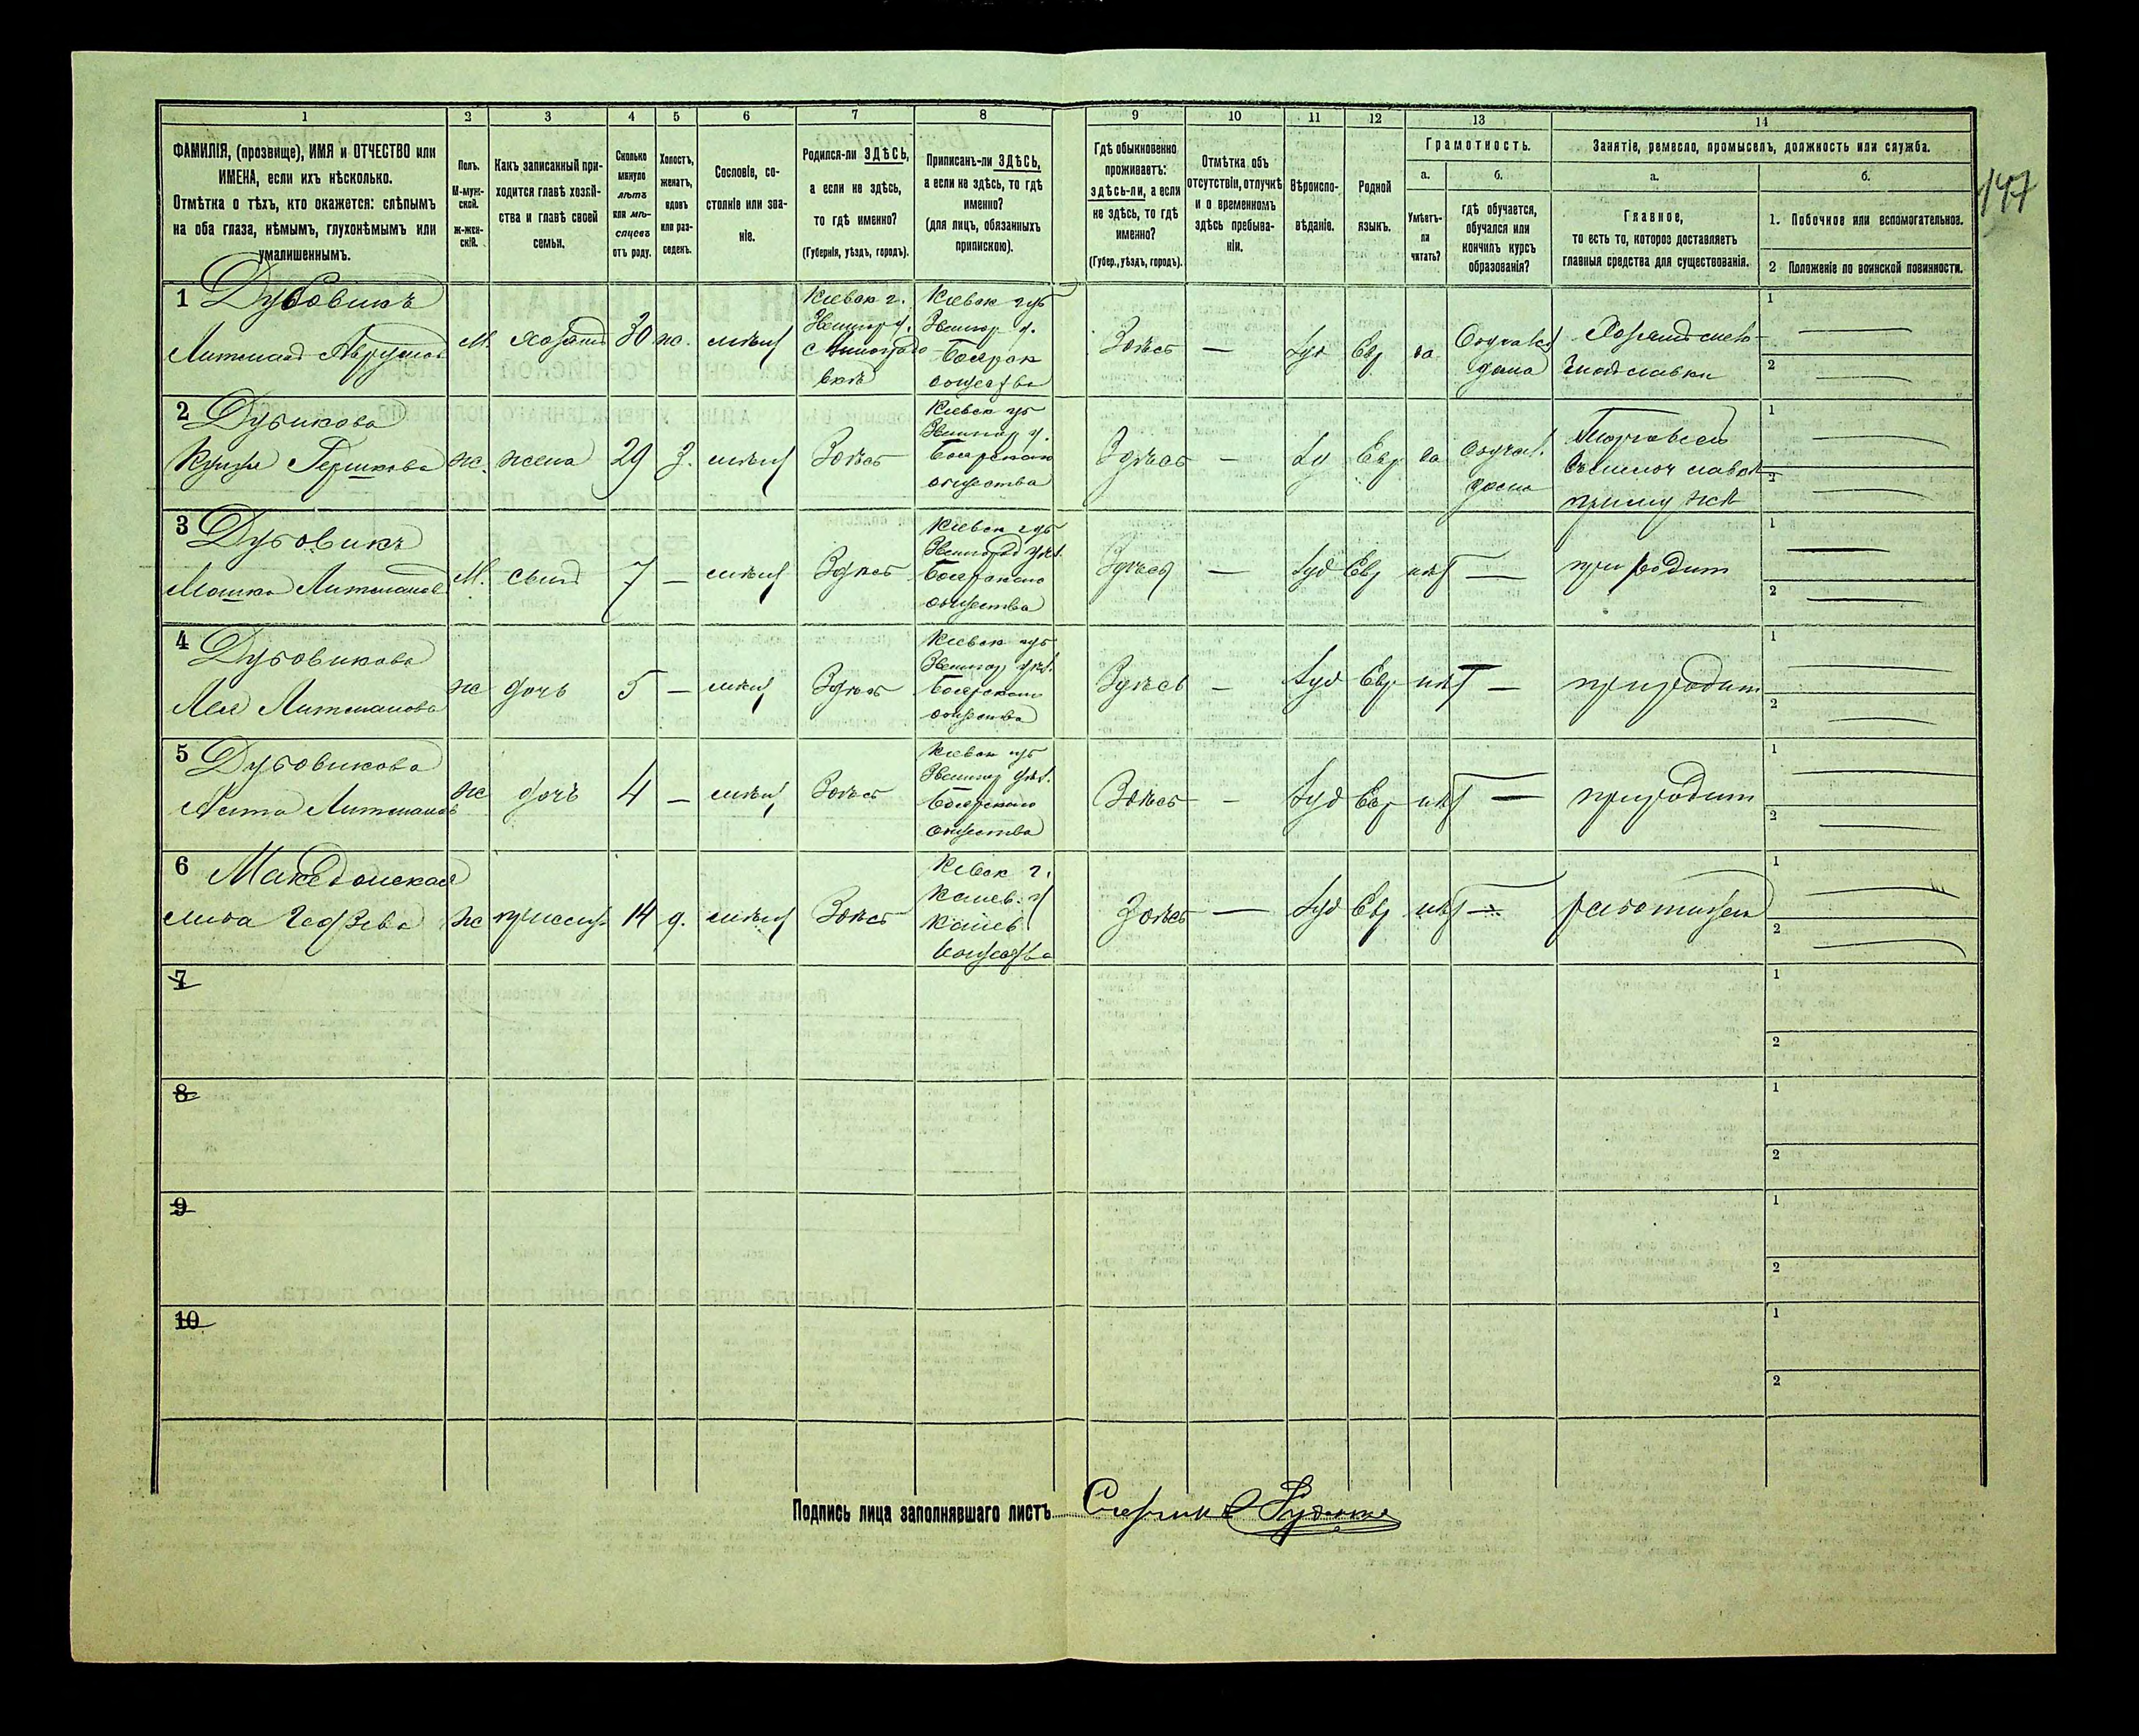 147
1 2 3 4 5 6 7 8 9 10 11 12 13 14
ФАМИЛІЯ, (прозвище), ИМЯ и ОТЧЕСТВО или
ИМЕНА, если ихъ нѣсколько.
Отмѣтка о тѣхъ, кто окажется: слѣпымъ
на оба глаза, нѣмымъ, глухонѣмымъ или
умалишеннымъ.
Полъ.
М-муж-
ской.
ж-жен-
скій.
Какъ записанный при-
ходится главѣ хозяй-
ства и главѣ своей
семьи.
Сколько
минуло
лѣтъ
или мѣ-
сяцевъ
отъ роду.
Холостъ,
женатъ,
вдовъ
или раз-
веденъ.
Сословіе, со-
стояніе или зва-
ніе.
Родился-ли ЗДѢСЬ,
а если не здѣсь,
то гдѣ именно?
(Губернія, уѣздъ, городъ).
Приписанъ-ли ЗДѢСЬ,
а если не здѣсь, то гдѣ
именно?
(для лицъ, обязанныхъ
припискою).
Гдѣ обыкновенно
проживаетъ:
здѣсь-ли, а если
не здѣсь, то гдѣ
именно?
(Губер., уѣздъ, городъ).
Отмѣтка объ
отсутствіи, отлучкѣ
и о временномъ
здѣсь пребыва-
ніи.
Вѣроиспо-
вѣданіе.
Родной
языкъ.
Грамотность.
а.
Умѣетъ-
ли
читать?
б.
гдѣ обучается,
обучался или
кончилъ курсъ
образованія?
Занятіе, ремесло, промыселъ, должность или служба.
а.
Главное,
то есть то, которое доставляетъ
главныя средства для существованія.
б.
1. Побочное или вспомогательное.
2 Положеніе по воинской повинности.
1 Дубовикъ
Литман Аврумов М. хозяин 30 ж. мѣщ
Киевск г.
Звенигор у.
Киевск губ
Звенигор у.
Боярск
общества
Здѣсь — Іуд Евр да
дома
Хозяин
лавки
1
2
2 Дубикова
Гершкова ж. жена 29 З. мѣщ Здѣсь
Киевск губ
Звенигор у.
Боярскаго
общества
Здѣсь — Іу Евр да
дома
лавк
при муже
1
2
3 Дубовикъ
Мошко Литманов М. сын 7 — мѣщ Здѣсь
Киевск губ
Звенигород уѣз.
Боярскаго
общества
Здѣсь — Іуд Евр нѣт —
при родит
1
2
4 Дубовикова
Лея Литманова ж дочь 5 — мѣщ Здѣсь
Киевск губ
Звенигор уѣз.
Боярскаго
общества
Здѣсь — Іуд Евр нѣт —
при родит
1
2
5 Дубовикова
Литманов ж дочь 4 — мѣщ Здѣсь
Киевск губ
Звенигор уѣз.
Боярскаго
общества
Здѣсь — Іуд Евр нѣт —
при родит
1
2
6 Македонская
ж прислуг 14 д. мѣщ Здѣсь
Киевск г.
Канев. у
Канев
общества
Здѣсь — Іуд Евр нѣт —
1
2
7
1
2
8
1
2
9
1
2
10
1
2
Подпись лица заполнявшаго листъ